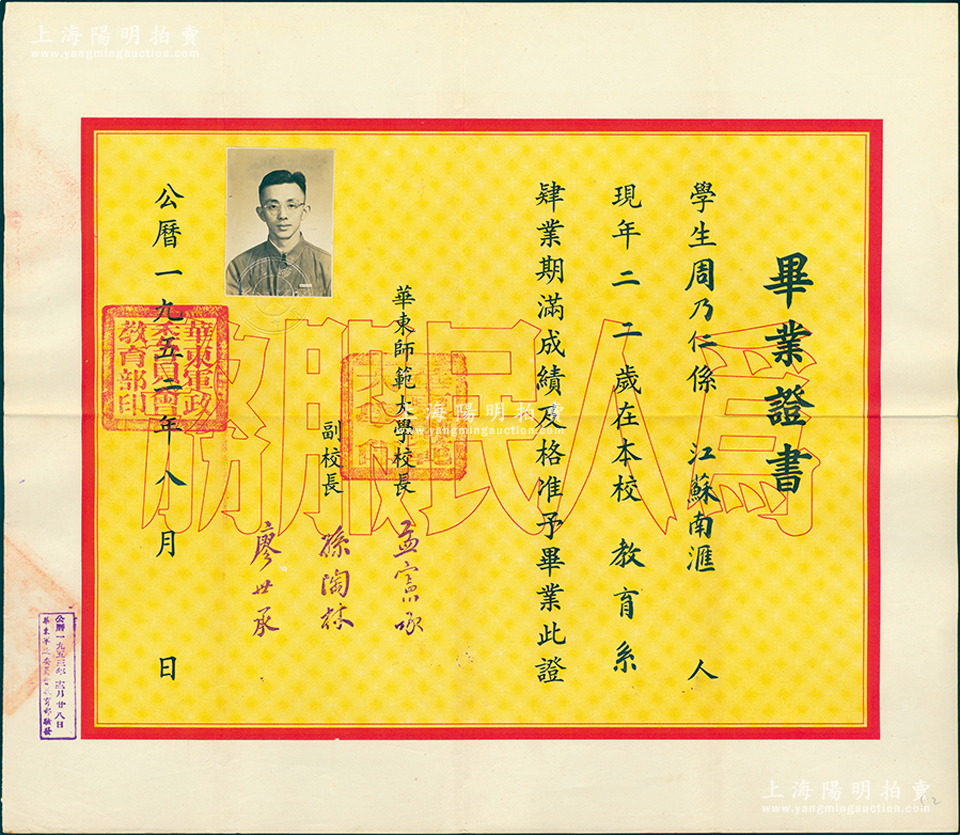 上海陽明拍賣
www.yangmingauction.com
畢業證書
學生周乃仁係 江蘇南滙 人
現年二二歲在本校 教育系
肄業期滿成績及格准予畢業此證
華東師範大學校長 孟憲承
副校長 孫陶林
廖世承
公曆一九五二年八月 日
爲人民服務
華東軍政
委員會
教育部印
上海陽明拍賣
www.yangmingauction.com
公曆一九五三年 月廿八日
上海陽明拍賣
www.yangmingauction.com